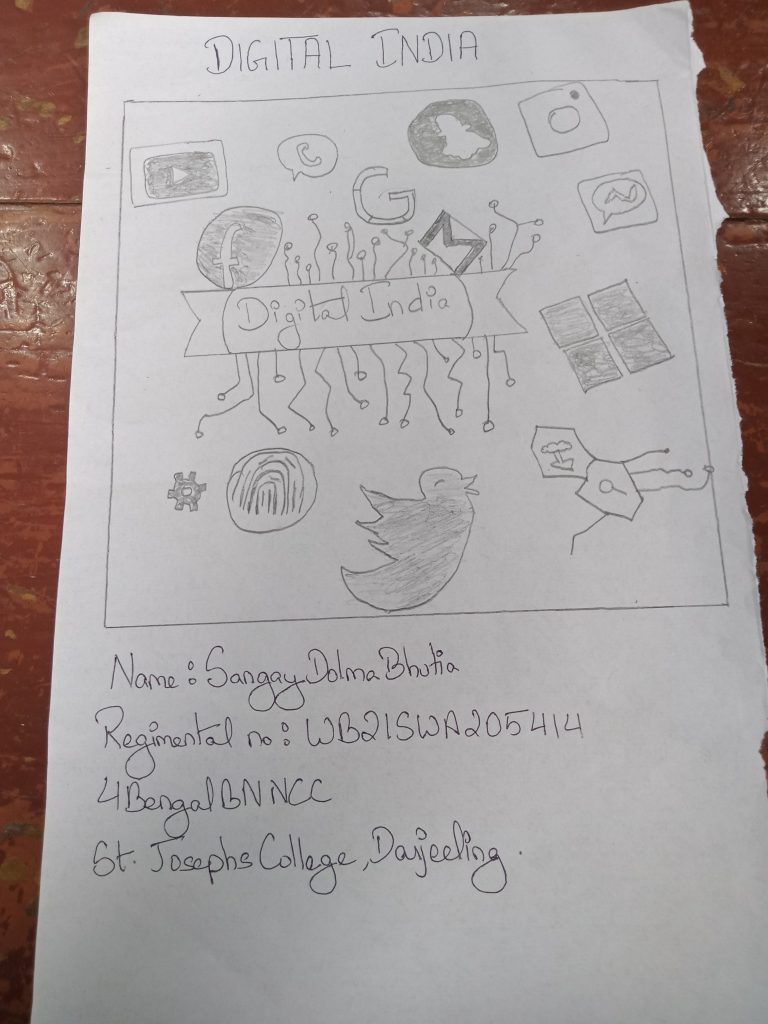 DIGITAL INDIA
Digital India
Name : Sangay Dolma Bhutia
Regimental no : WB21SWA205414
4 Bengal BN NCC
St. Josephs College, Darjeeling.